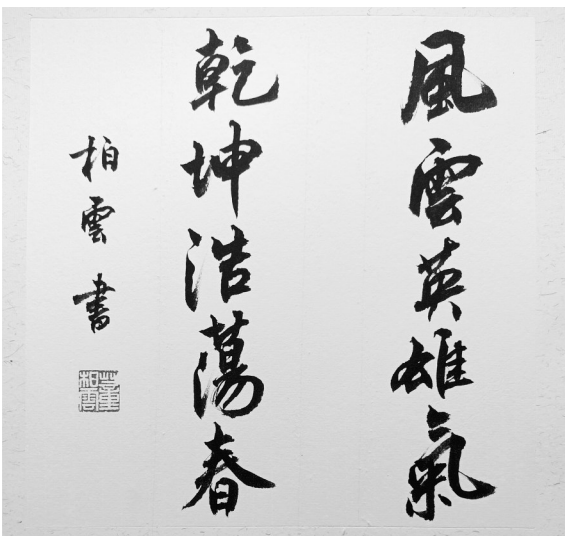 風雲英雄氣
乾坤浩蕩春
柏雲書
董柏雲